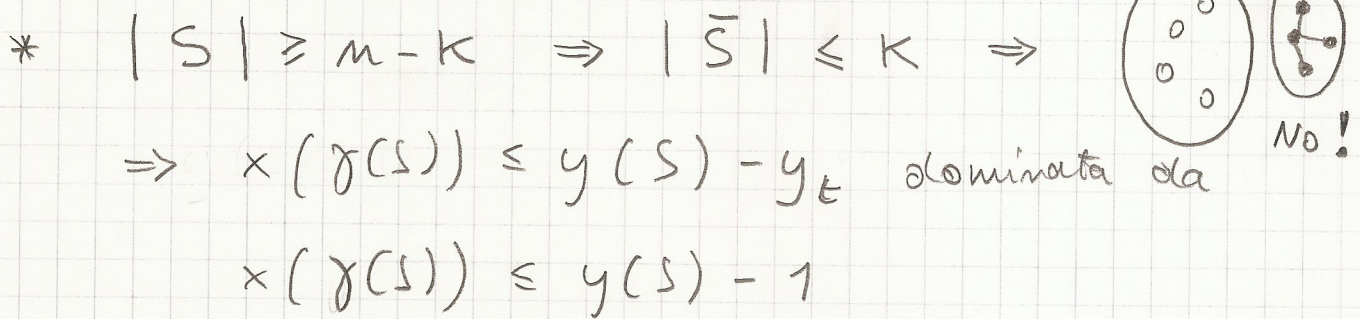 * | S | ≥ n - K ⇒ | S̄ | ≤ K ⇒
No!
⇒ x(γ(S)) ≤ y(S) - y_t dominata da
x(γ(S)) ≤ y(S) - 1